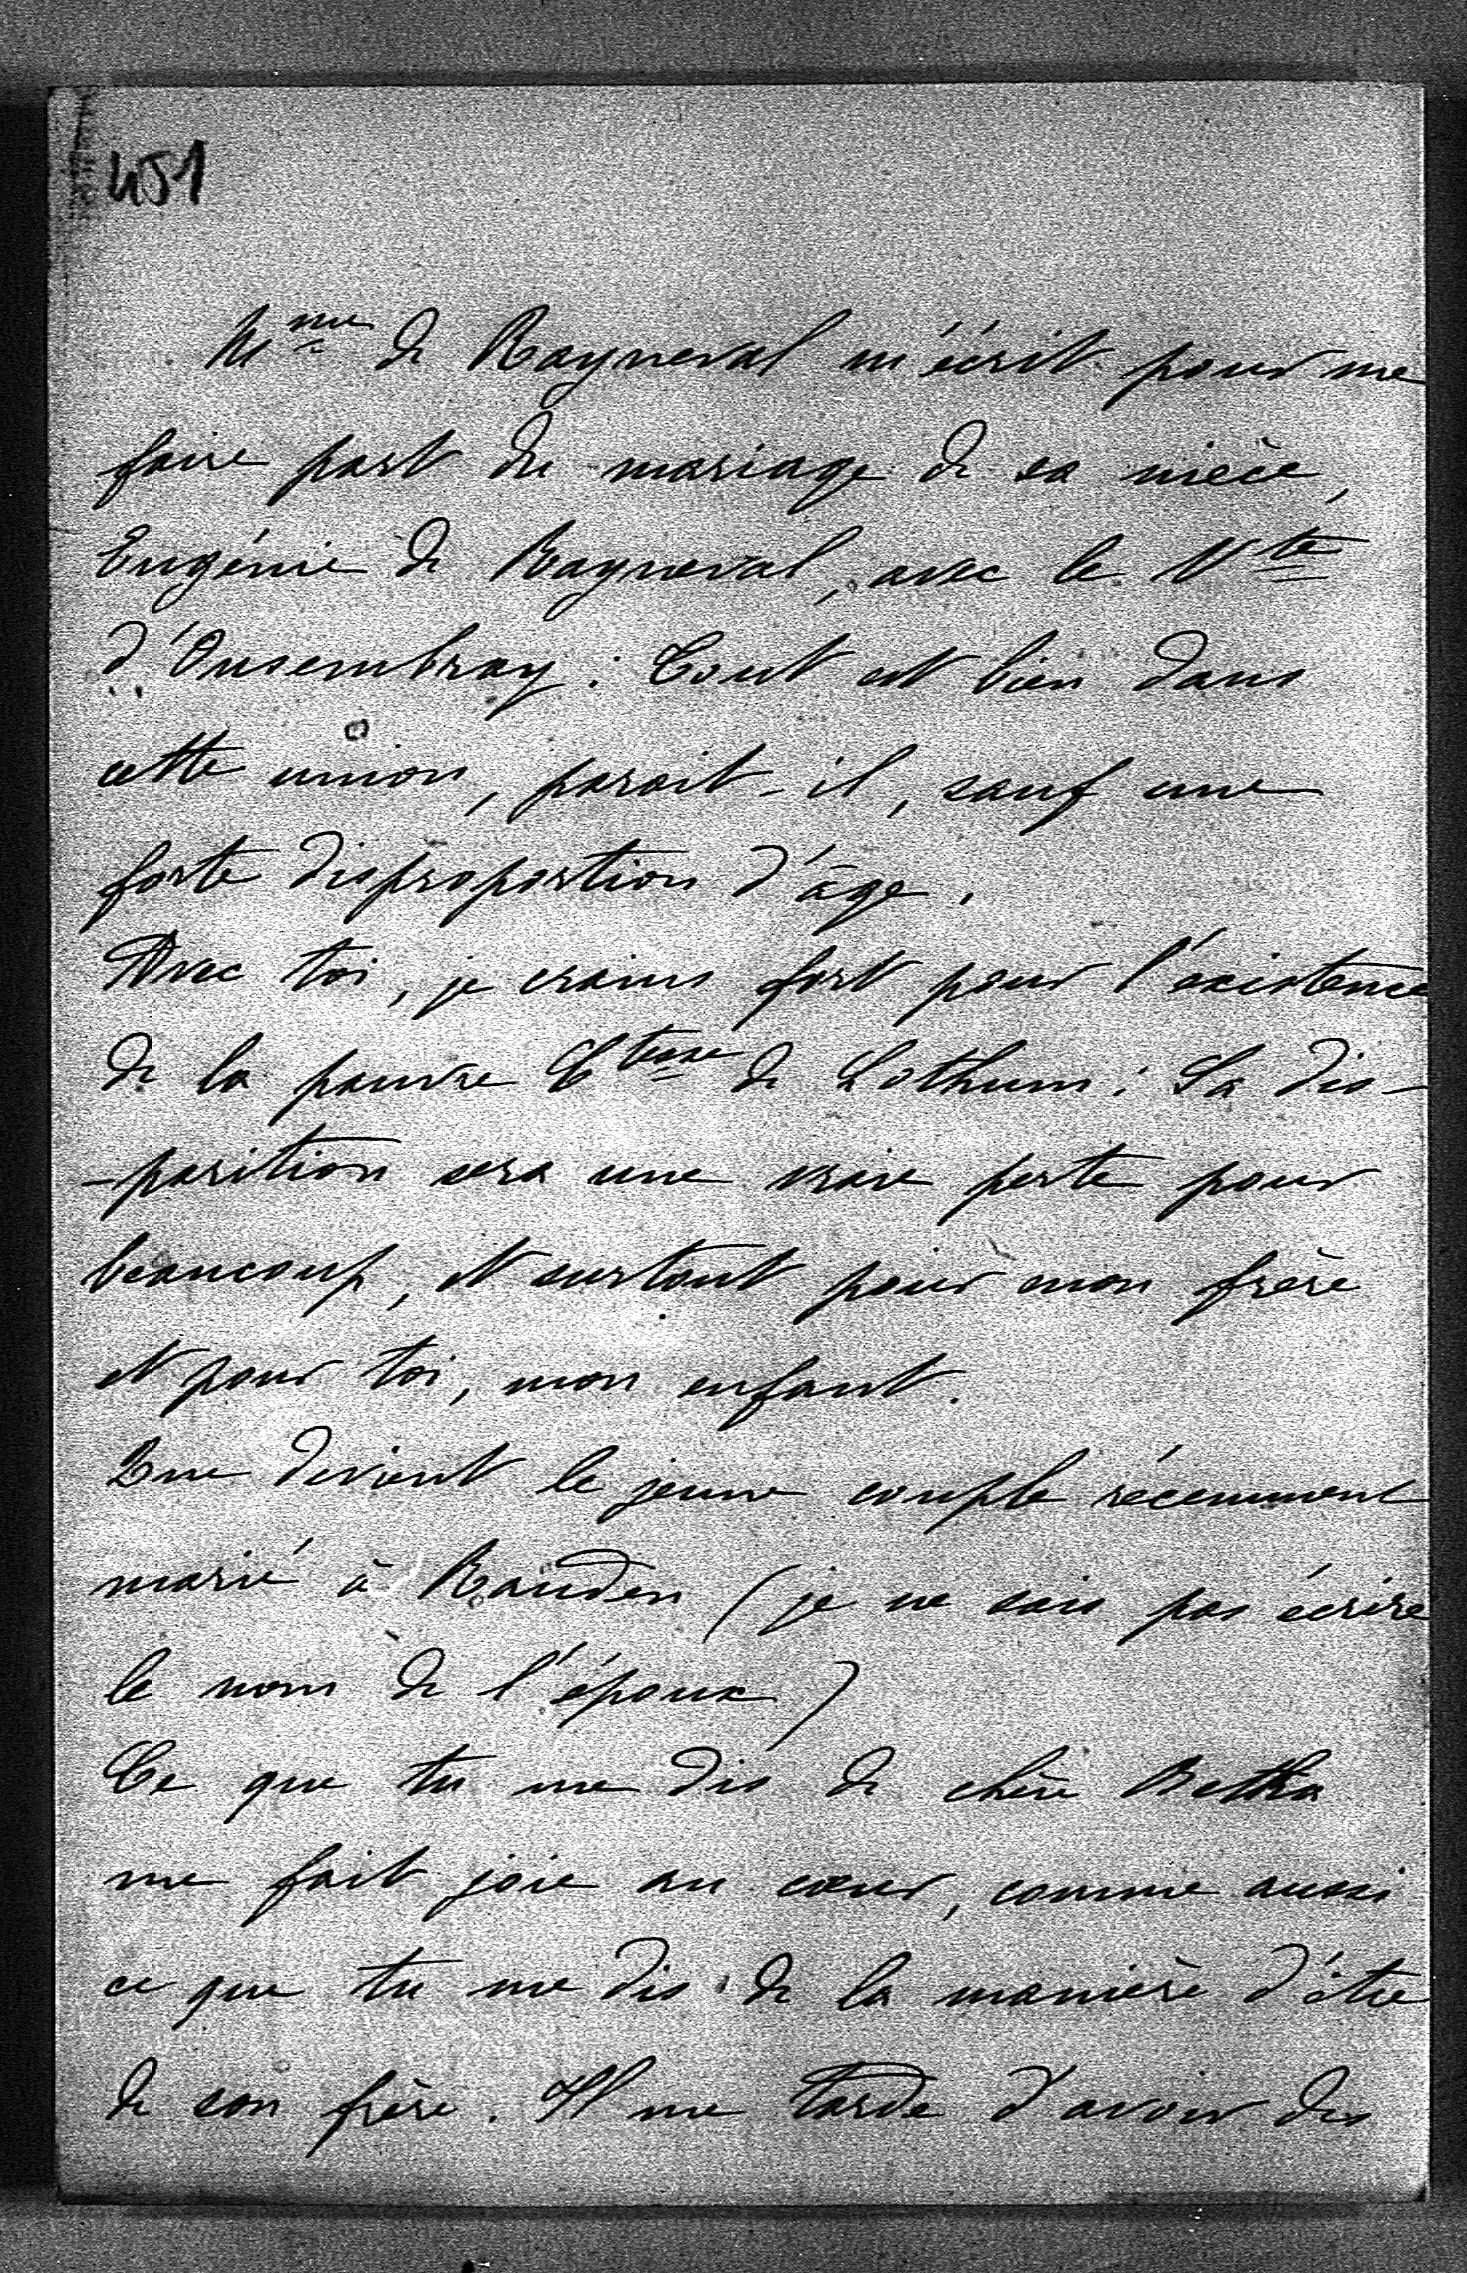 451
Mme de Rayneval m'écrit pour me
faire part du mariage de sa nièce,
Eugénie de Rayneval, avec le Vte
d'Onsembray. Tout est bien dans
cette union, parait-il, sauf une
forte disproportion d'âge.
Avec toi, je crains fort pour l'existence
de la pauvre Ctesse de Lothum : Sa dis-
-parition sera une vraie perte pour
beaucoup, et surtout pour mon frère
et pour toi, mon enfant.
Que devient le jeune couple récemment
marié à Rauden (je ne sais pas écrire
le nom de l'époux)
Ce que tu me dis de chère Betka
me fait joie au cœur, comme aussi
ce que tu me dis de la manière d'être
de son frère. Il me tarde d'avoir des